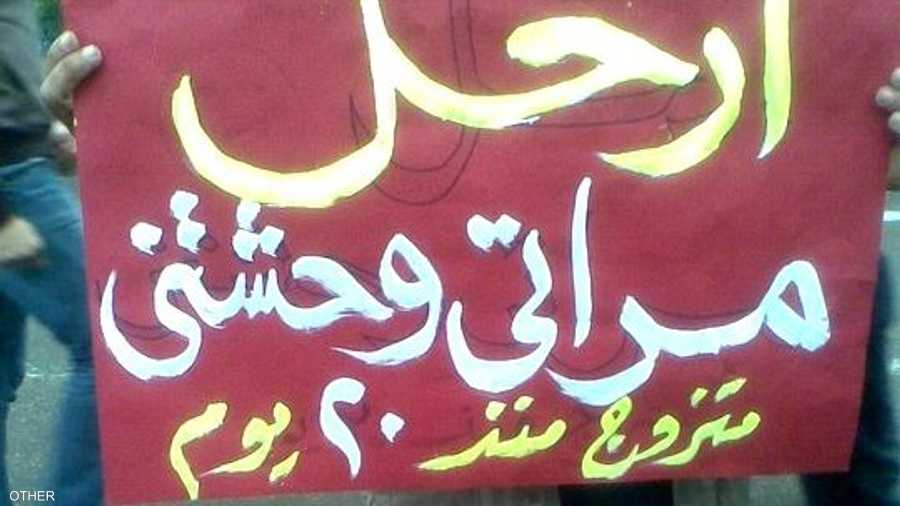 ارحل
مراتى وحشتنى
متزوج منذ ٢٠ يوم
OTHER